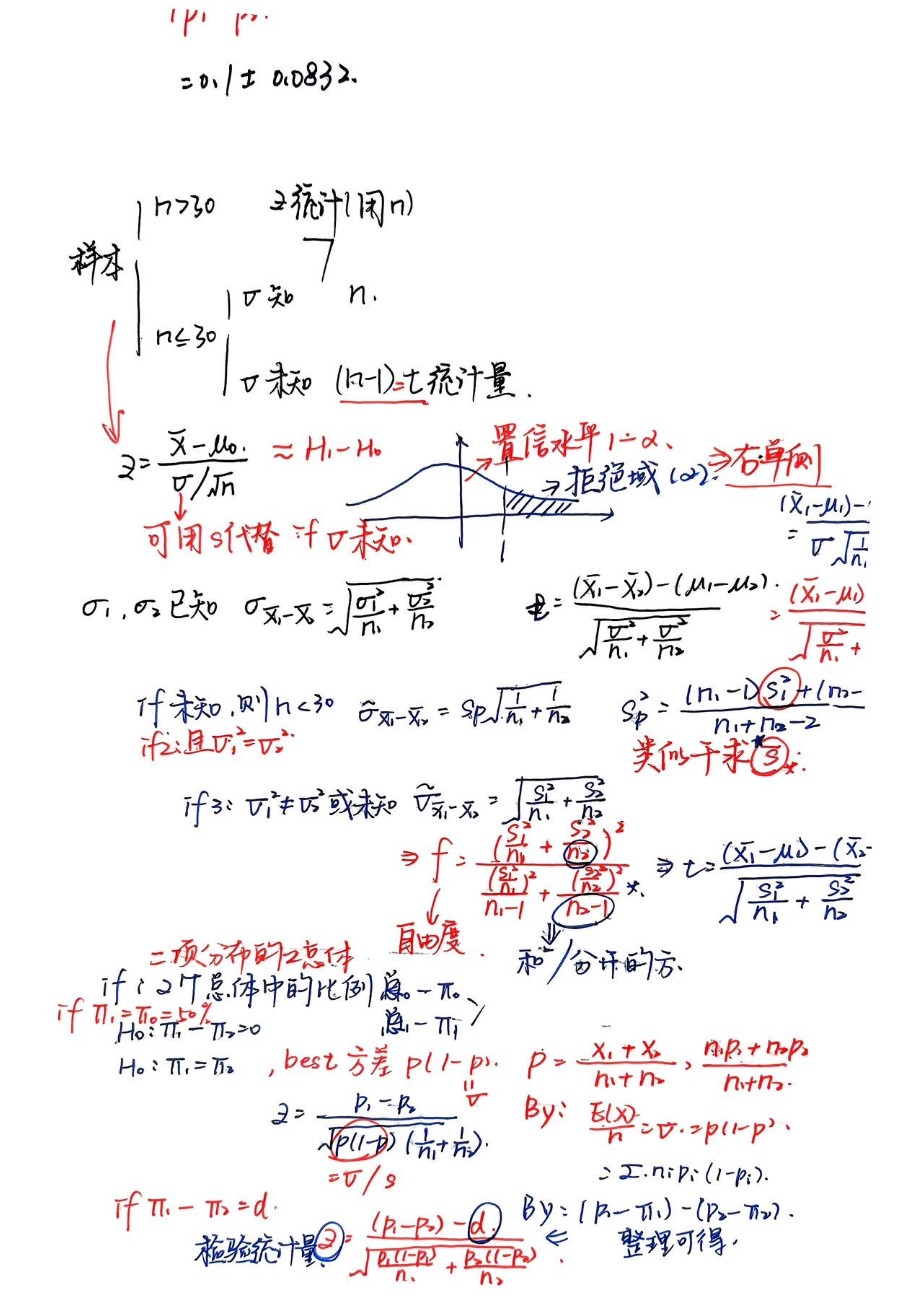 =0.1±0.0832.
n>30 z统计(用n)
样本
σ知 n.
n≤30
σ未知 (n-1)=t统计量.
z=(x̄-μ₀)/(σ/√n) ≈ H₁-H₀
置信水平1-α、
→拒绝域(α). ⇒右单侧
可用s代替 if σ未知.
(x̄₁-μ₁)-
=σ√(1/n₁
σ₁,σ₂已知 σx̄₁-x̄₂=√(σ₁²/n₁+σ₂²/n₂)
z=((x̄₁-x̄₂)-(μ₁-μ₂))/√(σ²/n₁+σ²/n₂) = (x̄₁-μ₁)/√(σ²/n₁+
if 未知,则n<30 σ̂x̄₁-x̄₂=Sp√(1/n₁+1/n₂) Sp²=((n₁-1)S₁²+(n₂-)/(n₁+n₂-2)
if2:且σ₁²=σ₂².
类似于求s̄*.
if3: σ₁²≠σ₂²或未知 σ̂x̄₁-x̄₂=√(S₁²/n₁+S₂²/n₂)
⇒f=(S₁²/n₁+S₂²/n₂)²/((S₁²/n₁)²/(n₁-1)+(S₂²/n₂)²/(n₂-1)) *. ⇒t=((x̄₁-μ₁)-(x̄₂-)/√(S₁²/n₁+S₂²/n₂)
自由度
二项分布的2总体.
和²/分开的方.
if: 2个总体中的比例 总₀-π₀
总₁-π₁
if π₁=π₀=50%
H₀:π₁-π₂=0
H₀:π₁=π₂ ,best方差p(1-p). p=(x₁+x₂)/(n₁+n₂), (n₁p₁+n₂p₂)/(n₁+n₂).
"σ
z=(p₁-p₂)/√(p(1-p)(1/n₁+1/n₂)). By: E(x)/n=σ.=p(1-p).
=σ/s
=Σ.nᵢpᵢ(1-pᵢ).
if π₁-π₂=d.
By:(p₁-π₁)-(p₂-π₂).
检验统计量z=((p₁-p₂)-d)/√(p₁(1-p₁)/n₁+p₂(1-p₂)/n₂). ⇐ 整理可得.